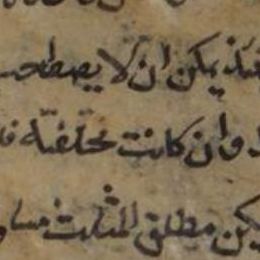 يمكن ان لا يصطحب
وان كانت مختلفة
يكن مطلق المثلث مساو